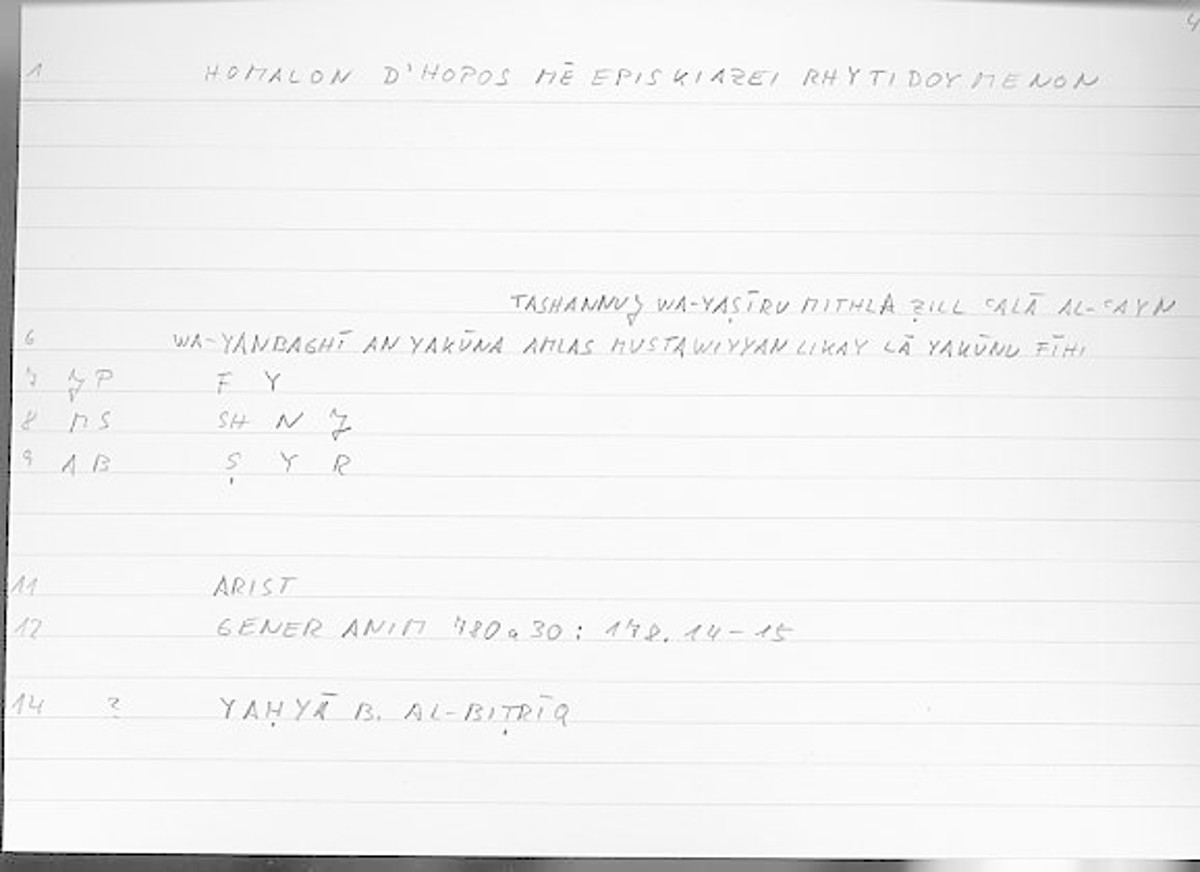 4
1 HOMALON D'HOPOS MĒ EPISKIAZEI RHYTIDOYMENON
TASHANNUJ WA-YAṢĪRU MITHLA ẒILL ʿALĀ AL-ʿAYN
6 WA-YANBAGHĪ AN YAKŪNA AMLAS MUSTAWIYYAN LIKAY LĀ YAKŪNU FĪHI
7 JP F Y
8 MS SH N J
9 AB Ṣ Y R
11 ARIST
12 GENER ANIM 780a30: 178.14-15
14 ? YAḤYĀ B. AL-BIṬRĪQ